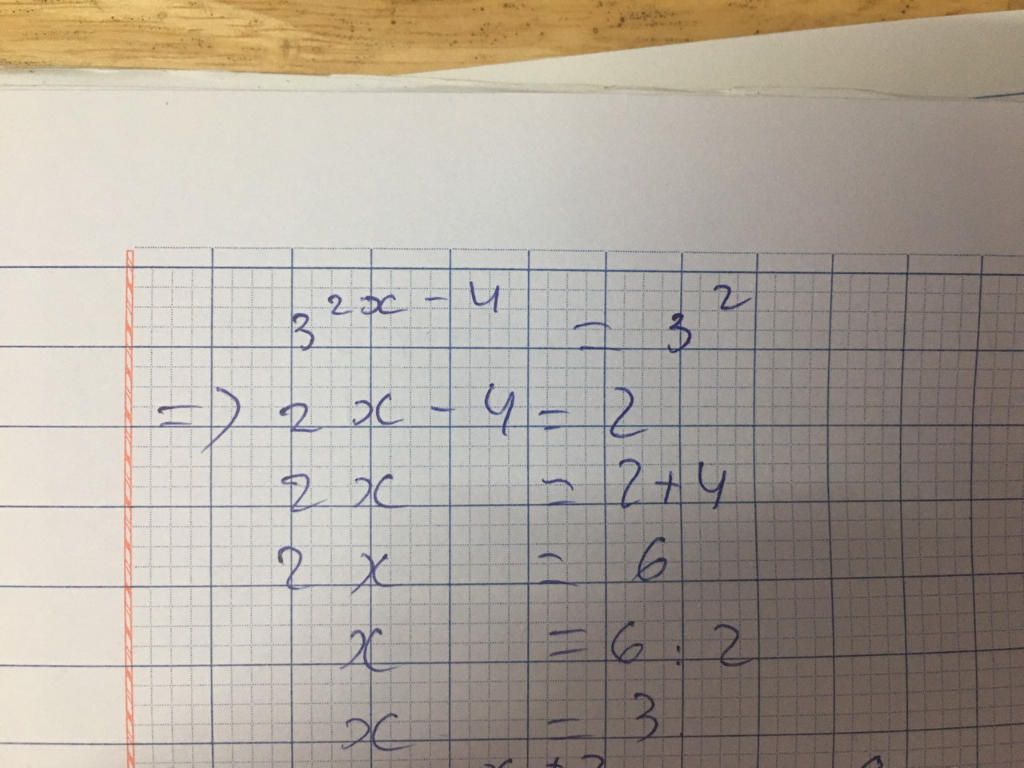 3^{2x-4} = 3^2
=> 2x - 4 = 2
2x = 2+4
2x = 6
x = 6 : 2
x = 3